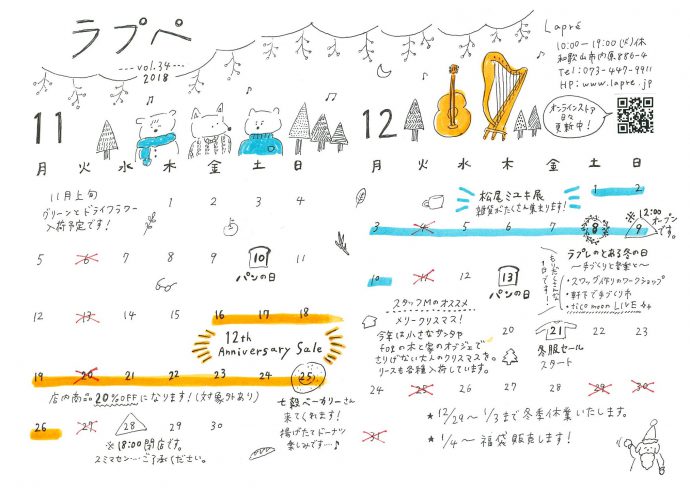 ラプペ
---vol.34---
2018
Lapré
10:00-19:00 (火)休
和歌山市内原886-4
Tel:073-447-9911
HP:www.lapre.jp
オンラインストア
日々
更新中!
11
月 火 水 木 金 土 日
11月上旬
グリーンとドライフラワー
入荷予定です!
1 2 3 4
5 6 7 8 9 10 11
パンの日
12 13 14 15 16 17 18
12th
Anniversary Sale
19 20 21 22 23 24 25
店内商品20%OFFになります!(対象外あり)
七穀ベーカリーさん
来てくれます!
揚げたてドーナツ
楽しみです…♪
26 27 28 29 30
※18:00閉店です。
スミマセン…ご了承ください。
12
月 火 水 木 金 土 日
松尾ミユキ展
雑貨がたくさん集まります!
1 2
3 4 5 6 7 8 9
※12:00
オープン
です。
ラプレのとある冬の日
〜手づくりと音楽と〜
・スワッグ作りのワークショップ
・軒下で手づくり市
・tico moon LIVE
もりだくさんな
1日です!
10 11 12 13
パンの日
スタッフMのオススメ
メリークリスマス!
今年は小さなサンタや
fogの木と家のオブジェで
さりげない大人のクリスマスを。
リースも各種入荷しています。
20 21 22 23
冬服セール
スタート
24 25 26 27 28 29 30
31
★12/29〜1/3まで冬季休業いたします。
★1/4〜福袋販売します!